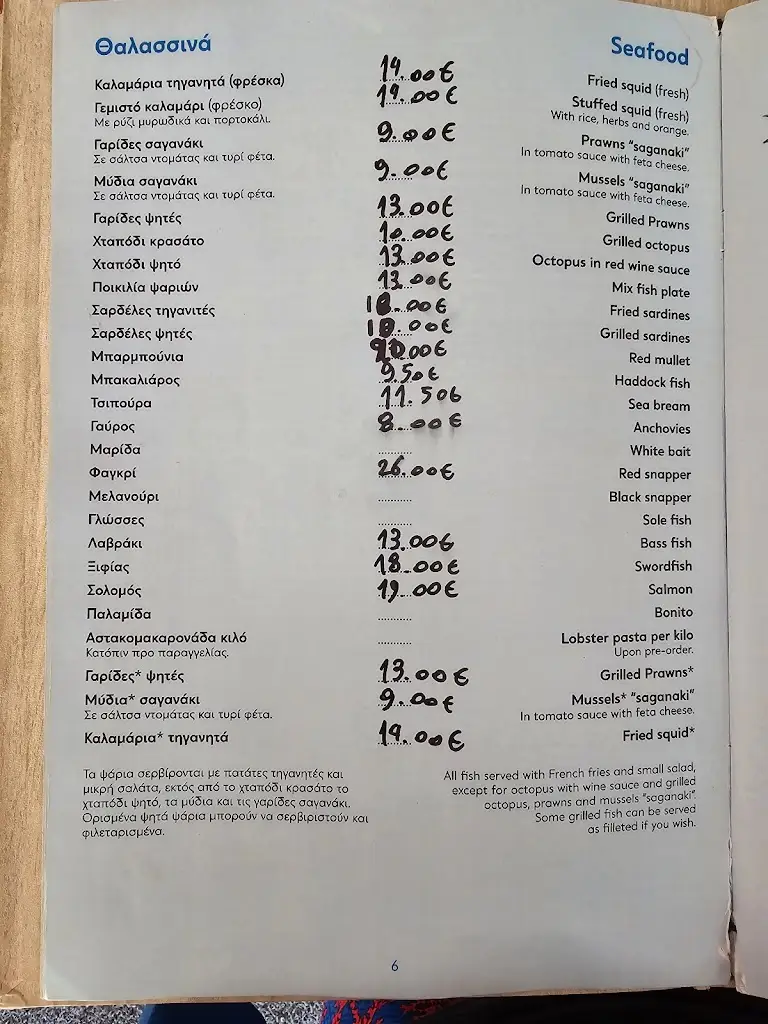 Θαλασσινά Seafood
Καλαμάρια τηγανητά (φρέσκα) 19.00€ Fried squid (fresh)
Γεμιστό καλαμάρι (φρέσκο) 19.00€ Stuffed squid (fresh)
Με ρύζι μυρωδικά και πορτοκάλι. With rice, herbs and orange.
Γαρίδες σαγανάκι 9.00€ Prawns "saganaki"
Σε σάλτσα ντομάτας και τυρί φέτα. In tomato sauce with feta cheese.
Μύδια σαγανάκι 9.00€ Mussels "saganaki"
Σε σάλτσα ντομάτας και τυρί φέτα. In tomato sauce with feta cheese.
Γαρίδες ψητές 13.00€ Grilled Prawns
Χταπόδι κρασάτο 10.00€ Grilled octopus
Χταπόδι ψητό 13.00€ Octopus in red wine sauce
Ποικιλία ψαριών 13.00€ Mix fish plate
Σαρδέλες τηγανιτές Fried sardines
Σαρδέλες ψητές Grilled sardines
Μπαρμπούνια Red mullet
Μπακαλιάρος 9.50€ Haddock fish
Τσιπούρα 11.50€ Sea bream
Γαύρος 8.00€ Anchovies
Μαρίδα ........... White bait
Φαγκρί 26.00€ Red snapper
Μελανούρι ........... Black snapper
Γλώσσες ........... Sole fish
Λαβράκι 13.00€ Bass fish
Ξιφίας 18.00€ Swordfish
Σολομός 19.00€ Salmon
Παλαμίδα ........... Bonito
Αστακομακαρονάδα κιλό ........... Lobster pasta per kilo
Κατόπιν προ παραγγελίας. Upon pre-order.
Γαρίδες* ψητές 13.00€ Grilled Prawns*
Μύδια* σαγανάκι 9.00€ Mussels* "saganaki"
Σε σάλτσα ντομάτας και τυρί φέτα. In tomato sauce with feta cheese.
Καλαμάρια* τηγανητά 19.00€ Fried squid*
Τα ψάρια σερβίρονται με πατάτες τηγανητές και
μικρή σαλάτα, εκτός από το χταπόδι κρασάτο το
χταπόδι ψητό, τα μύδια και τις γαρίδες σαγανάκι.
Ορισμένα ψητά ψάρια μπορούν να σερβιριστούν και
φιλεταρισμένα.
All fish served with French fries and small salad,
except for octopus with wine sauce and grilled
octopus, prawns and mussels "saganaki".
Some grilled fish can be served
as filleted if you wish.
6